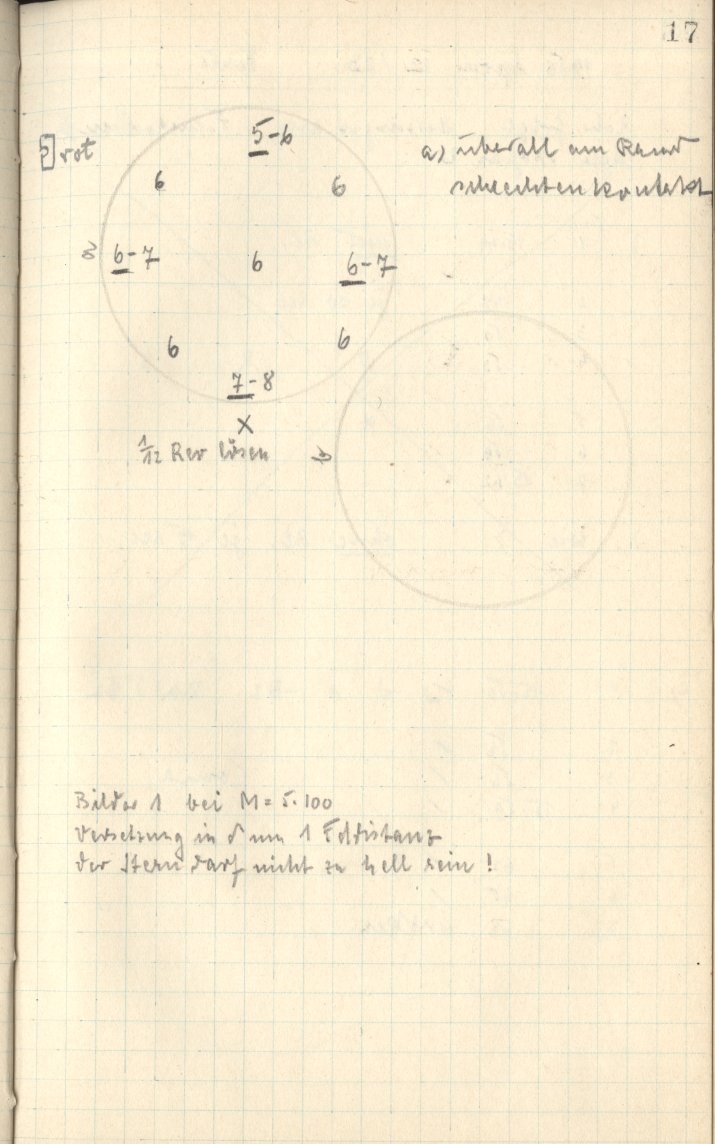 17
rot
5-6
a) überall am Rand
schlechten Kontakt
6 6
6-7 6 6-7
6 6
7-8
x
1/12 Rev lösen
Bilder 1 bei M = 5.100
Versetzung in δ um 1 Felddistanz
der Stern darf nicht zu hell sein!